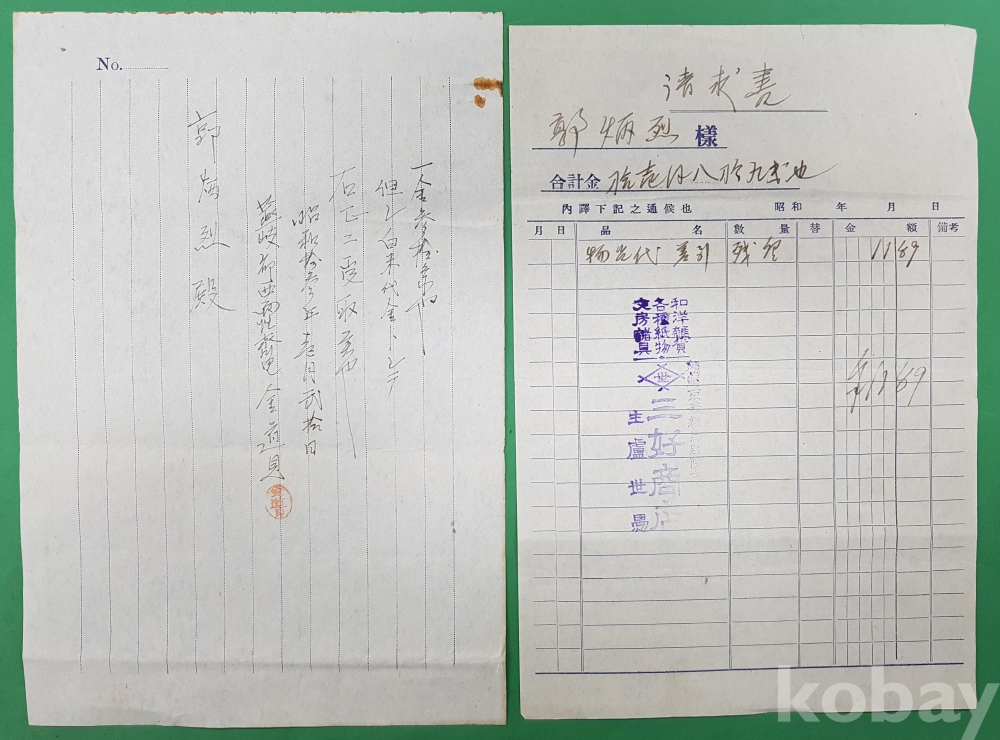 No.
一金參拾壱円
但シ白米代金トシテ
右正ニ受取候也
昭和拾參年壱月貳拾日
金道員
郭炳烈殿
请求書
郭炳烈様
合計金 拾壱円八拾九戋也
內譯下記之通候也 昭和 年 月 日
月 日 品名 數量 替 金額 備考
物品代 差引 残額 11 89
和洋雜貨
各種紙物
文房諸具
世
三好商店
主盧世愚
11 89
kobay